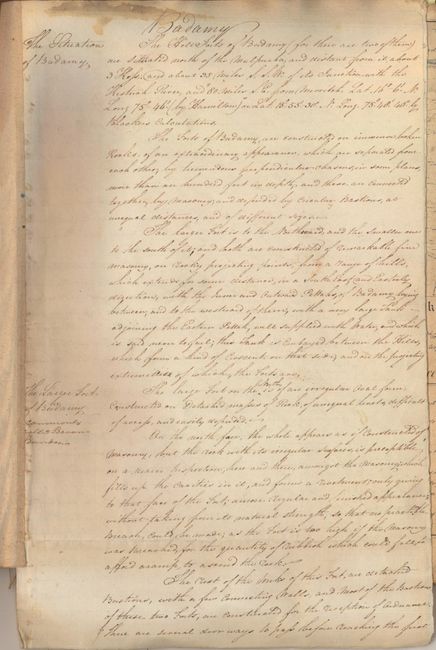 Badamy
The Situation
of Badamy,
The Hill Forts of Badamy (for there are two of them)
are situated north of the Malpurba, and distant from it about
3 Koss; and about 33 miles S.S.W. of its Junction with the
Kistnah River, and 80 miles S.E. from Merritch. Lat. 16° 6' N.
Long 75° 46' by Hamilton; or Lat. 15°.55'.30" N. Long. 75°.48'.45" by
Blackers Calculations.
The Forts of Badamy, are constructed on immense broken
Rocks, of an extraordinary appearance, which are separated from
each other, by tremendous perpendicular chasms, in some places
more than an hundred feet in depth; and these are connected
together, by Masonry, and defended by Circular Bastions, at
unequal distances, and of different sizes.
The larger Fort is to the Northward, and the smaller one
to the South of it; and both are constructed of remarkable fine
masonry, on rocky projecting points, from a range of hills,
which extends for some distance, in a Southerly and Easterly
direction; with the Inner and Outward Pettahs, of Badamy, lying
between, and to the westward of them; with a very large Tank
adjoining the Eastern Pettah, well supplied with water, and which
is said never to fail; this Tank is embayed between the Hills,
which form a kind of Crescent on that side; and on the projecting
extremities of which, the Forts are.
The Larger Fort
of Badamy
commonly
called Bawun
The large Fort on the North is of an irregular oval form,
constructed on detached masses of Rock, of unequal heights, difficult
of access, and easily defended.
On the north face, the whole appears as if Constructed of
Masonry, but the rock with its irregular surface, is perceptible,
on a nearer inspection, here and there, amongst the Masonry, which
fills up the cavities in it, and forms a revetment; only giving
to that face of the Fort, a more regular and finished appearance,
without taking from its natural strength, so that no practicable
Breach, could be made; as the Fort is too high, if the Masonry
was breached, for the quantity of rubbish which could fall, to
afford a ramp to ascend the rock.
The rest of the works of this Fort, are detached
Bastions, with a few Connecting Walls, and most of the Bastions
of these two Forts, are constructed for the reception of Ordnance.
There are several door ways to pass before reaching the first